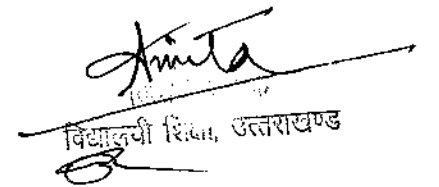 Amita
विद्यालयी शिक्षा, उत्तराखण्ड